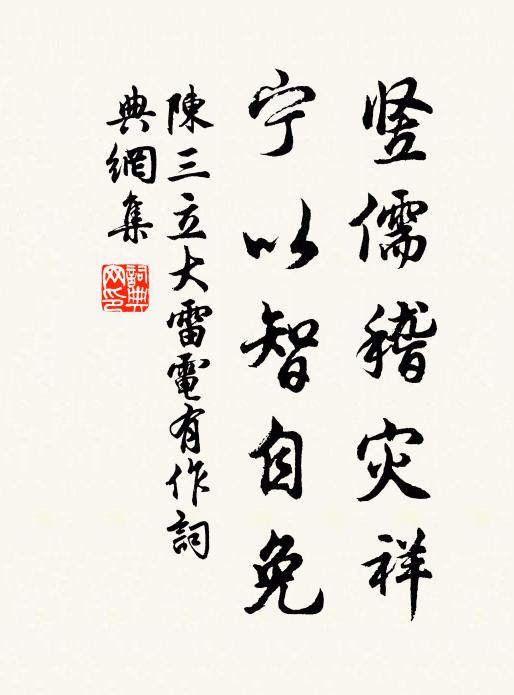 竖儒稽灾祥
宁以智自免
陳三立大雷電有作詞
典網集
詞典網印